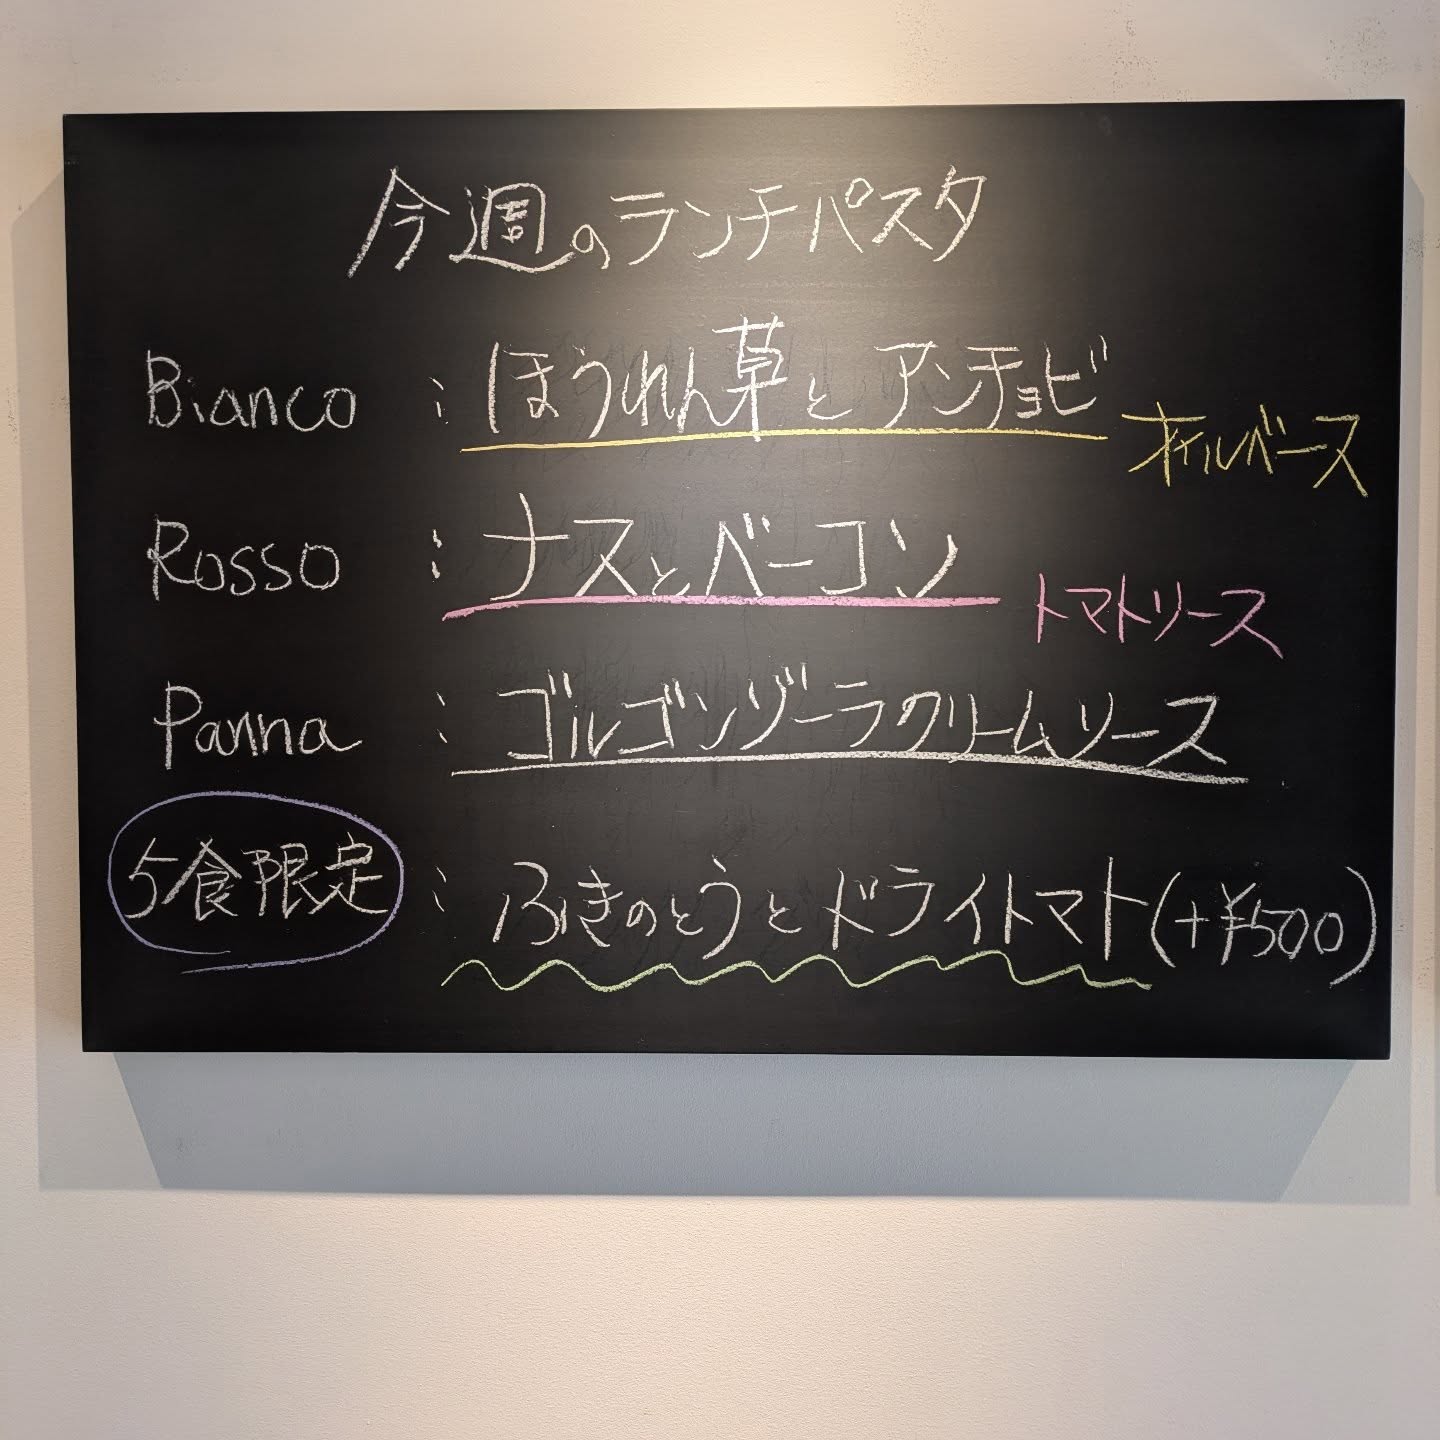 今週のランチパスタ
Bianco : ほうれん草とアンチョビ
オイルベース
Rosso : ナスとベーコン
トマトソース
Panna : ゴルゴンゾーラクリームソース
5食限定 : ふきのとうとドライトマト(+¥500)